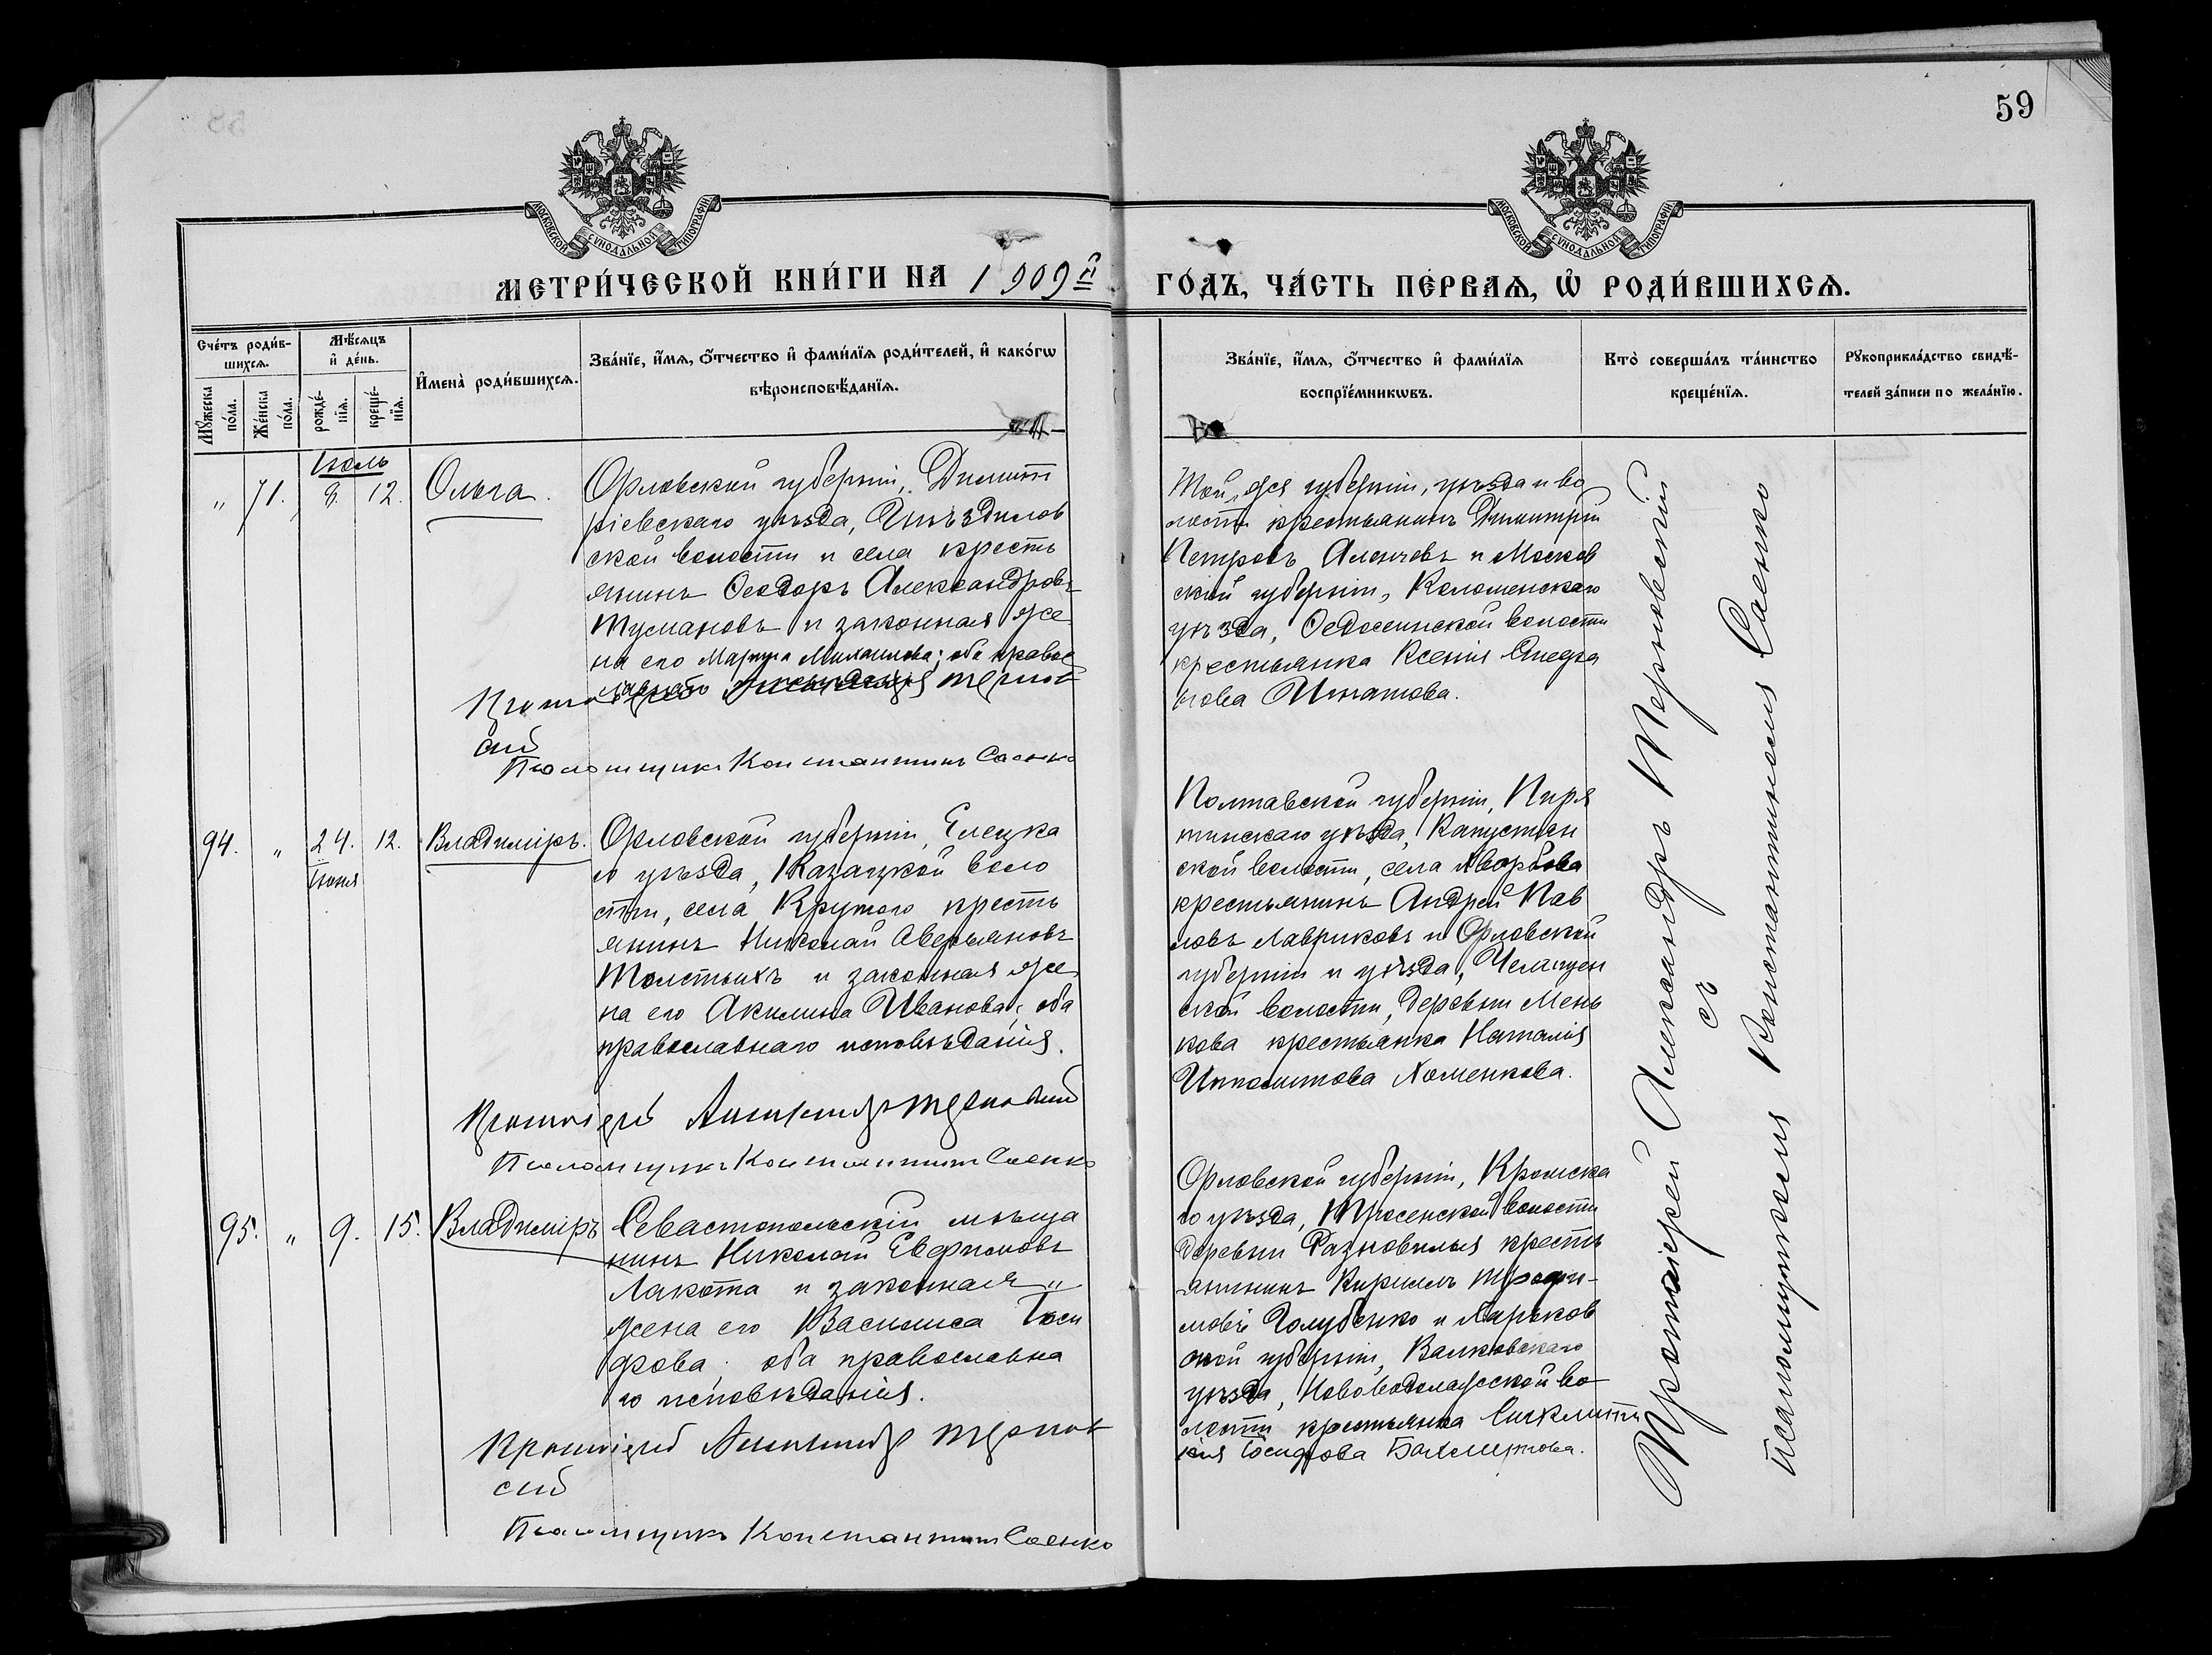 59
МОСКОВСКОЙ СѴНОДАЛЬНОЙ ТИПОГРАФІИ
МОСКОВСКОЙ СѴНОДАЛЬНОЙ ТИПОГРАФІИ
МЕТРИ́ЧЕСКОЙ КНИ́ГИ НА 1909й ГО́ДЪ, ЧА́СТЬ ПЕ́РВАѦ, Ѡ҆ РОДИ́ВШИХСѦ.
Сче́тъ роди́в-
шихсѧ.
Мꙋ́жеска по́ла.
Же́нска по́ла.
Мѣ́сѧцъ
и҆ де́нь.
рожде́-
нїѧ.
креще́-
нїѧ.
И҆мена̀ роди́вшихсѧ.
Зва́нїе, и҆́мѧ, ѻ҆́тчество и҆ фами́лїѧ роди́телей, и҆ како́гѡ
вѣроисповѣ́данїѧ.
Зва́нїе, и҆́мѧ, ѻ҆́тчество и҆ фами́лїѧ
воспрїе́мникѡвъ.
Кто̀ соверша́лъ та́инство
креще́нїѧ.
Рꙋкоприкла́дство свидѣ́-
телей за́писи по жела́нїю.
Іюль
" 71. 8. 12. Ольга.
Орловской губерніи, Димит
ріевскаго уѣзда, Гнѣздилов
ской волости и села кресть
янинъ Ѳеодоръ Александровъ
Тумановъ и законная же
на его Марѳа Михаилова; оба правос
лавнаго исповѣданія
Протоіерей Терновскій
Псаломщикъ Константинъ Саенко
Той-же губерніи, уѣзда и во
лости крестьянинъ Димитрій
Петровъ и Москов
ской губерніи, Коломенскаго
уѣзда, Ѳедосьинской волости
крестьянка Ксенія
Игнатова.
94. " 24. Іюня 12. Владиміръ.
Орловской губерніи, Елецка
го уѣзда, Казацкой воло
сти, села Крутого кресть
янинъ Николай Аверьяновъ
Толстыхъ и законная же
на его Акилина Иванова; оба
православнаго исповѣданія.
Протоіерей Александръ Терновскій
Псаломщикъ Константинъ Саенко
Полтавской губерніи, Пиря
тинскаго уѣзда, Капустин
ской волости, села
крестьянинъ Андрей Пав
ловъ Лавриковъ и Орловской
губерніи и уѣзда,
ской волости, деревни Мень
кова крестьянка Наталія
Ипполитова Хоменкова.
95. " 9. 15. Владиміръ
Севастопольскій мѣща
нинъ Николай Евфимовъ
Лакота и законная "
жена его Василиса Іоси
фова; оба православна
го исповѣданія.
Протоіерей Александръ Тернов
скій
Псаломщикъ Константинъ Саенко
Орловской губерніи, Кромска
го уѣзда, Тросенской волости
деревни кресть
янинъ Кириллъ Трофи-
мовъ Голубенко и Харьков
ской губерніи, Валковскаго
уѣзда, Нововодолажской во
лости крестьянка Синклити
кія Іосифова
Протоіерей Александръ Терновскій
съ
псаломщикомъ Константиномъ Саенко